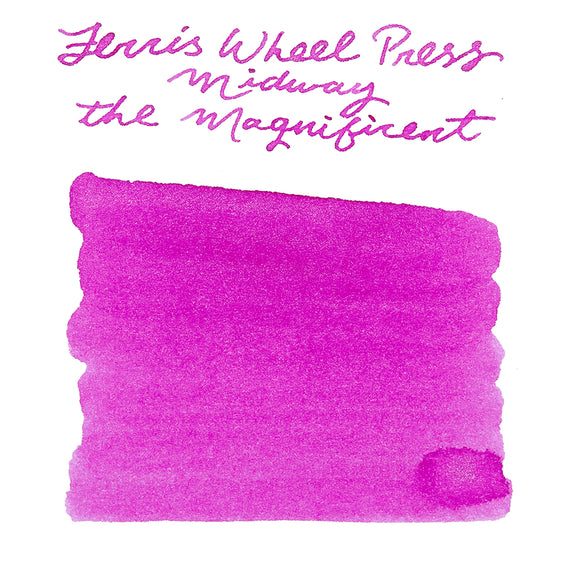 Ferris Wheel Press
Midway
the Magnificent